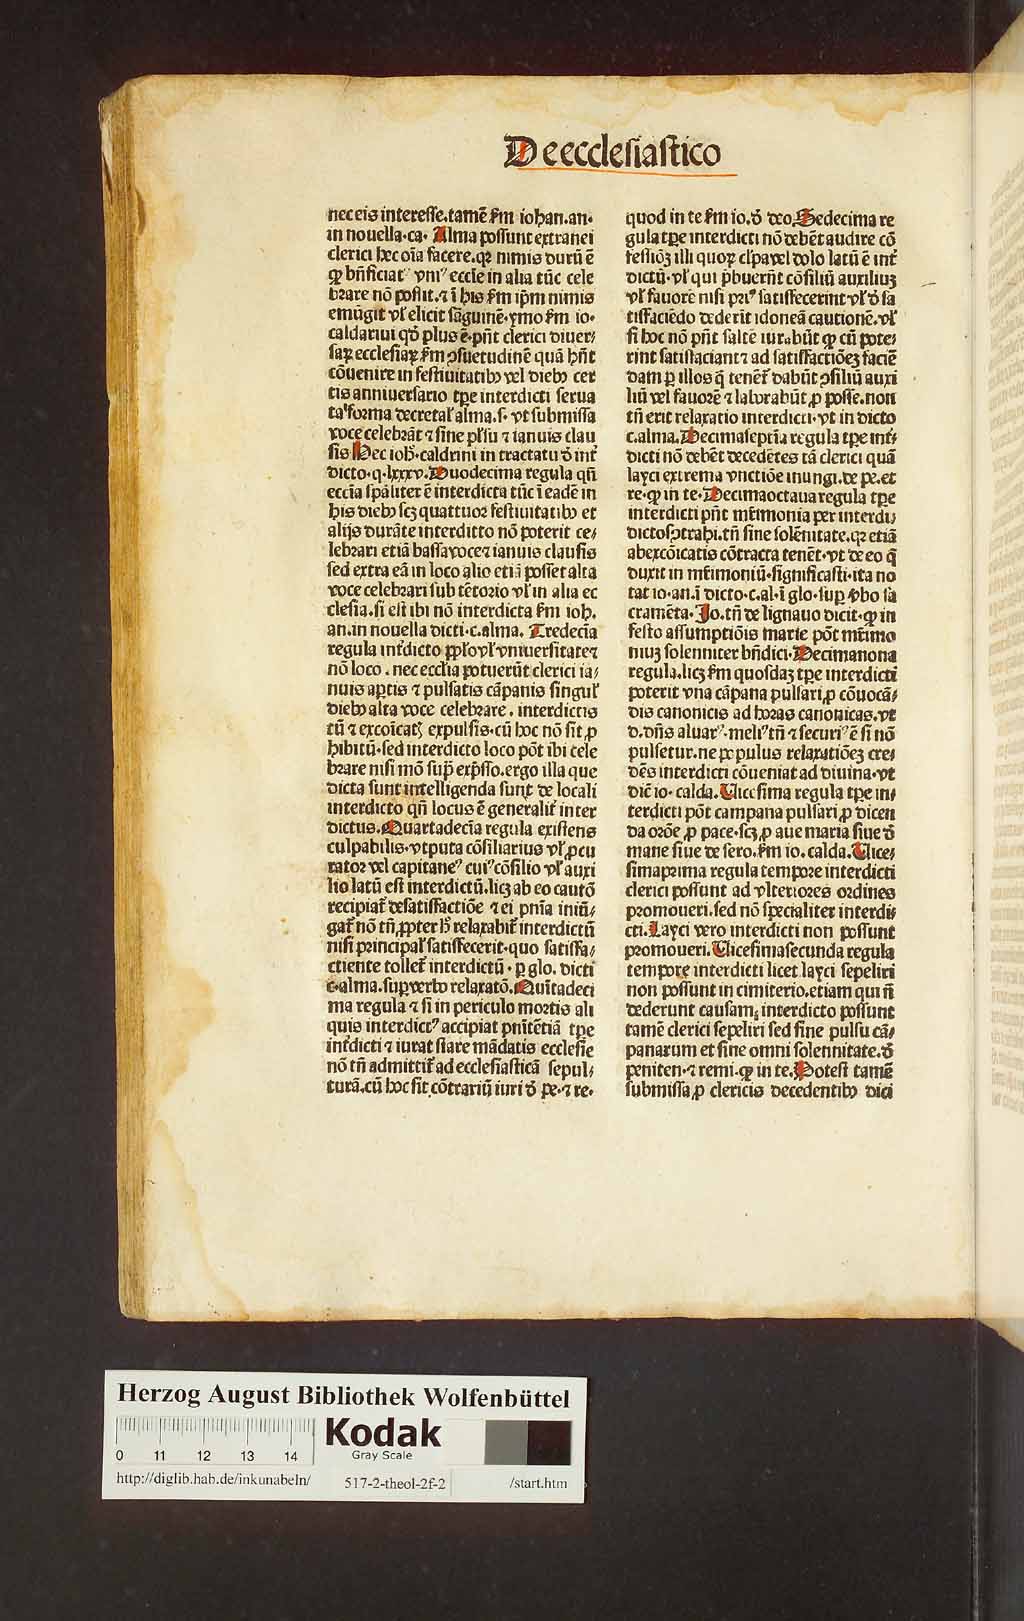 De ecclesiastico
nec eis interesse. tamē ẜm iohan. an.
in nouella. ca. Alma possunt extranei
clerici hec oīa facere. qꝛ nimis durū ē
ꝙ bn̄ficiatꝰ vniꝰ eccle in alia tūc cele
brare nō possit. ⁊ ī his ẜm ip̄m nimis
emūgit vl̓ elicit sāguinē. ymo ẜm io.
caldarini qd̓ plus ē. pn̄t clerici diuer⸗
saꝝ ecclesiaꝝ ẜm ꝯsuetudinē quā hn̄t
cōuenire in festiuitatibꝰ vel diebꝰ cer
tis anniuersario tp̄e interdicti serua
ta forma decretal̓ alma. s. vt submissa
voce celebrāt ⁊ sine pl̓su ⁊ ianuis clau
sis Hec ioh̓. caldrini in tractatu d̓ int̓
dicto. q. lxxxv. Duodecima regula qn̄
ecc̄ia sp̄aliter ē interdicta tūc ī eadē in
his diebꝰ scꝫ quattuor festiuitatibꝰ et
alijs durāte interditto nō poterit ce⸗
lebrari etiā bassa voce ⁊ ianuis clausis
sed extra eā in loco alio etiā posset alta
voce celebrari sub tētorio vl̓ in alia ec
clesia. si est ibi nō interdicta ẜm ioh.
an. in nouella dicti. c. alma. Tredecīa
regula int̓dicto ppl̓o vl̓ vniuersitate ⁊
nō loco. nec ecclīa potuerūt clerici ia⸗
nuis aꝑtis ⁊ pulsatis cāpanis singul̓
diebꝰ alta voce celebrare. interdictis
tn̄ ⁊ excoīcatꝭ expulsis. cū hoc nō sit ꝓ
hibitū. sed interdicto loco pōt ibi cele
brare nisi mō supͣ exp̄sso. ergo illa que
dicta sunt intelligenda sunt de locali
interdicto qn̄ locus ē generalit̓ inter
dictus. Quartadecīa regula existens
culpabilis. vtputa cōsiliarius vl̓ ꝓcu
rator vel capitaneꝰ cuiꝰ cōsilio vl̓ auxi
lio latū est interdictū. licꝫ ab eo cautō
recipiat̓ de satisfactiōe ⁊ ei pn̄ia iniū⸗
gat̓ nō tn̄ ꝓpter h̓ relaxabit̓ interdictū
nisi principal̓ satisfecerit. quo satisfa⸗
ctiente tollet̓ interdictū. ꝑ glo. dicti
c. alma. suꝑ verbo relaxatō. Quītadeci
ma regula ⁊ si in periculo mortis ali
quis interdictꝰ accipiat pn̄itētiā tp̄e
int̓dicti ⁊ iurat stare mādatis ecclesie
nō tn̄ admittit̓ ad ecclesiasticā sepul⸗
turā. cū hoc sit cōtrariū iuri d̓ pe. ⁊ re.
quod in te ẜm io. d̓ deo. Sedecima re
gula tp̄e interdicti nō debēt audire cō
fessiōꝫ illi quoꝝ cl̓pa vel dolo latū ē int̓
dictū. vl̓ qui p̄buerūt cōsiliū auxiliuꝫ
vl̓ fauorē nisi priꝰ satisfecerint vl̓ d̓ sa
tisfaciēdo dederūt idoneā cautionē. vl̓
si hoc nō pn̄t saltē iurabūt ꝙ cū pote⸗
rint satisfaciant ⁊ ad satisfactiōeꝫ faciē
dam ꝑ illos q̄ tenēt̓ dabūt ꝯsiliū auxi
liū vel fauorē ⁊ laborabūt ꝓ posse. non
tn̄ erit relaxatio interdicti. vt in dicto
c. alma. Decimaseptīa regula tp̄e int̓⸗
dicti nō debēt decedētes tā clerici quā
layci extrema vnctiōe inungi. de pe. et
re. ꝙ in te. Decimaoctaua regula tp̄e
interdicti pn̄t mr̄imonia per interdi⸗
ctos ꝯtrahi. tn̄ sine solēnitate. qꝛ etiā
ab excōicatis cōtracta tenēt. vt de eo q̄
duxit in mr̄imoniū. significasti. ita no
tat io. an. ī dicto. c. al. ī glo. suꝑ v̓bo sa
cramēta. Jo. tn̄ de lignauo dicit. ꝙ in
festo assumptiōis marie pōt mr̄imo
niuꝫ solenniter bn̄dici. Decimanona
regula. licꝫ ẜm quosdaꝫ tp̄e interdicti
poterit vna cāpana pulsari ꝓ cōuocā⸗
dis canonicis ad horas canonicas. vt
d. dn̄s aluarꝰ. meliꝰ tn̄ ⁊ securiꝰ ē si nō
pulsetur. ne ꝓpter populus relaxatiōeꝫ cre⸗
dēs interdicti cōueniat ad diuina. vt
dic̄ io. calda. Uicesima regula tp̄e in⸗
terdicti pōt campana pulsari ꝓ dicen
da or̄oe ꝓ pace. scꝫ ꝓ aue maria siue d̓
mane siue de sero. ẜm io. calda. Uice⸗
simaprima regula tempore interdicti
clerici possunt ad vlteriores ordines
promoueri. sed nō specialiter interdi⸗
cti. Layci vero interdicti non possunt
promoueri. Uicesimasecunda regula
tempore interdicti licet layci sepeliri
non possunt in cimiterio. etiam qui n̄
dederunt causam interdicto possunt
tamē clerici sepeliri sed sine pulsu cā⸗
panarum et sine omni solennitate. d̓
peniten. ⁊ remi. ꝙ in te. Potest tamē
submissa ꝓ clericis decedentibꝰ dici
Herzog August Bibliothek Wolfenbüttel
0 11 12 13 14
Kodak
Gray Scale
http://diglib.hab.de/inkunabeln/ 517-2-theol-2f-2 /start.htm